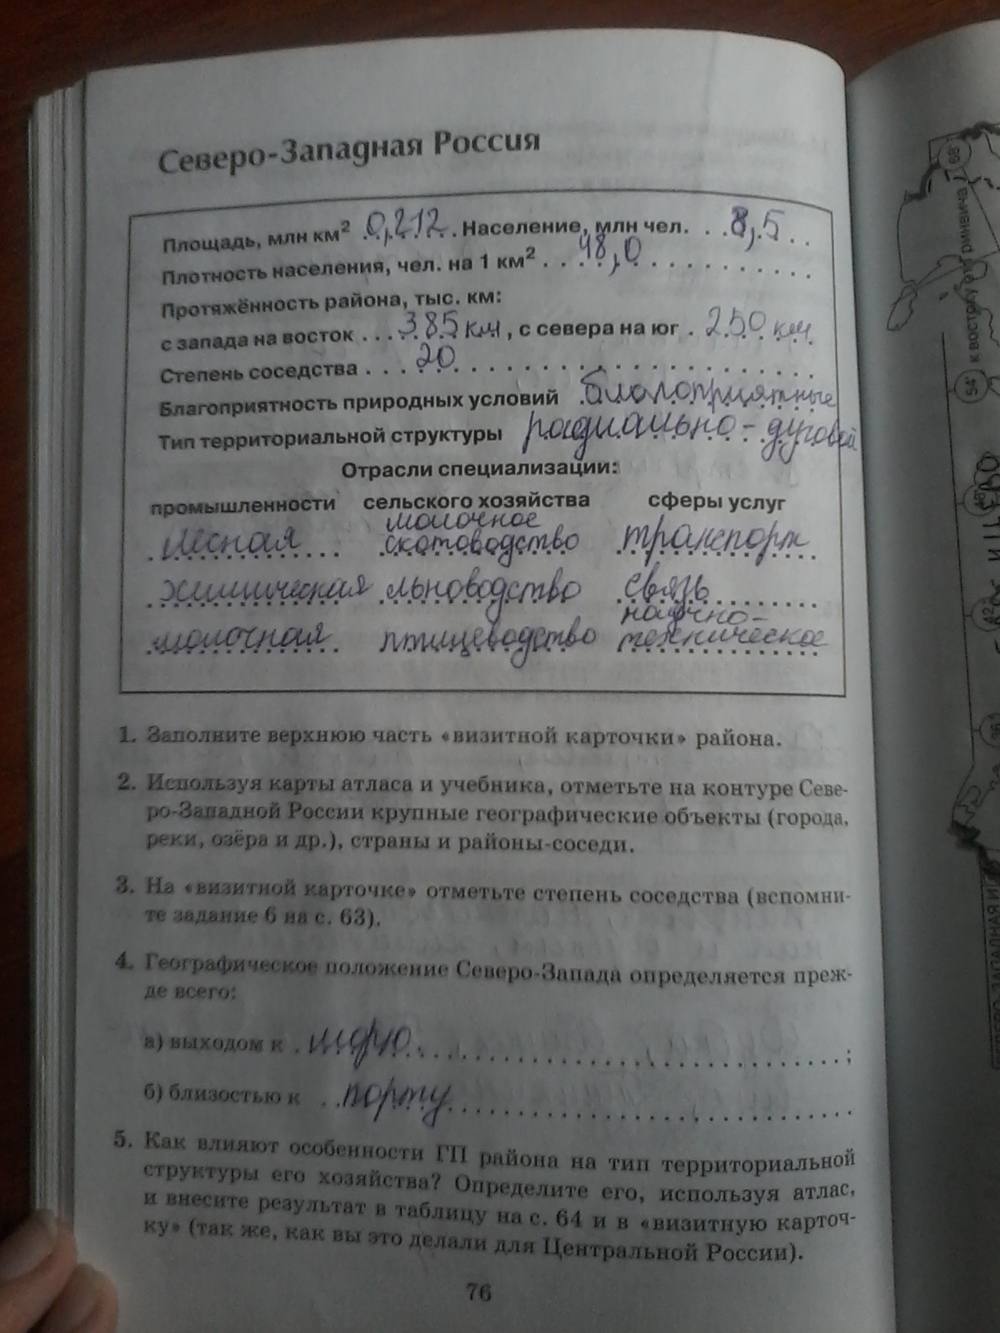 Северо-Западная Россия
Площадь, млн км² 0,212. Население, млн чел. 8,5
Плотность населения, чел. на 1 км² 48,0
Протяжённость района, тыс. км:
с запада на восток 385 км, с севера на юг 250 км
Степень соседства 20
Благоприятность природных условий благоприятные
Тип территориальной структуры радиально-дуговой
Отрасли специализации:
промышленности сельского хозяйства сферы услуг
лесная молочное скотоводство транспорт
химическая льноводство связь
молочная птицеводство научно-техническое
1. Заполните верхнюю часть «визитной карточки» района.
2. Используя карты атласа и учебника, отметьте на контуре Севе-
ро-Западной России крупные географические объекты (города,
реки, озёра и др.), страны и районы-соседи.
3. На «визитной карточке» отметьте степень соседства (вспомни-
те задание 6 на с. 63).
4. Географическое положение Северо-Запада определяется преж-
де всего:
а) выходом к морю;
б) близостью к порту
5. Как влияют особенности ГП района на тип территориальной
структуры его хозяйства? Определите его, используя атлас,
и внесите результат в таблицу на с. 64 и в «визитную карточ-
ку» (так же, как вы это делали для Центральной России).
76
68°
к востоку от Гринвича
54°